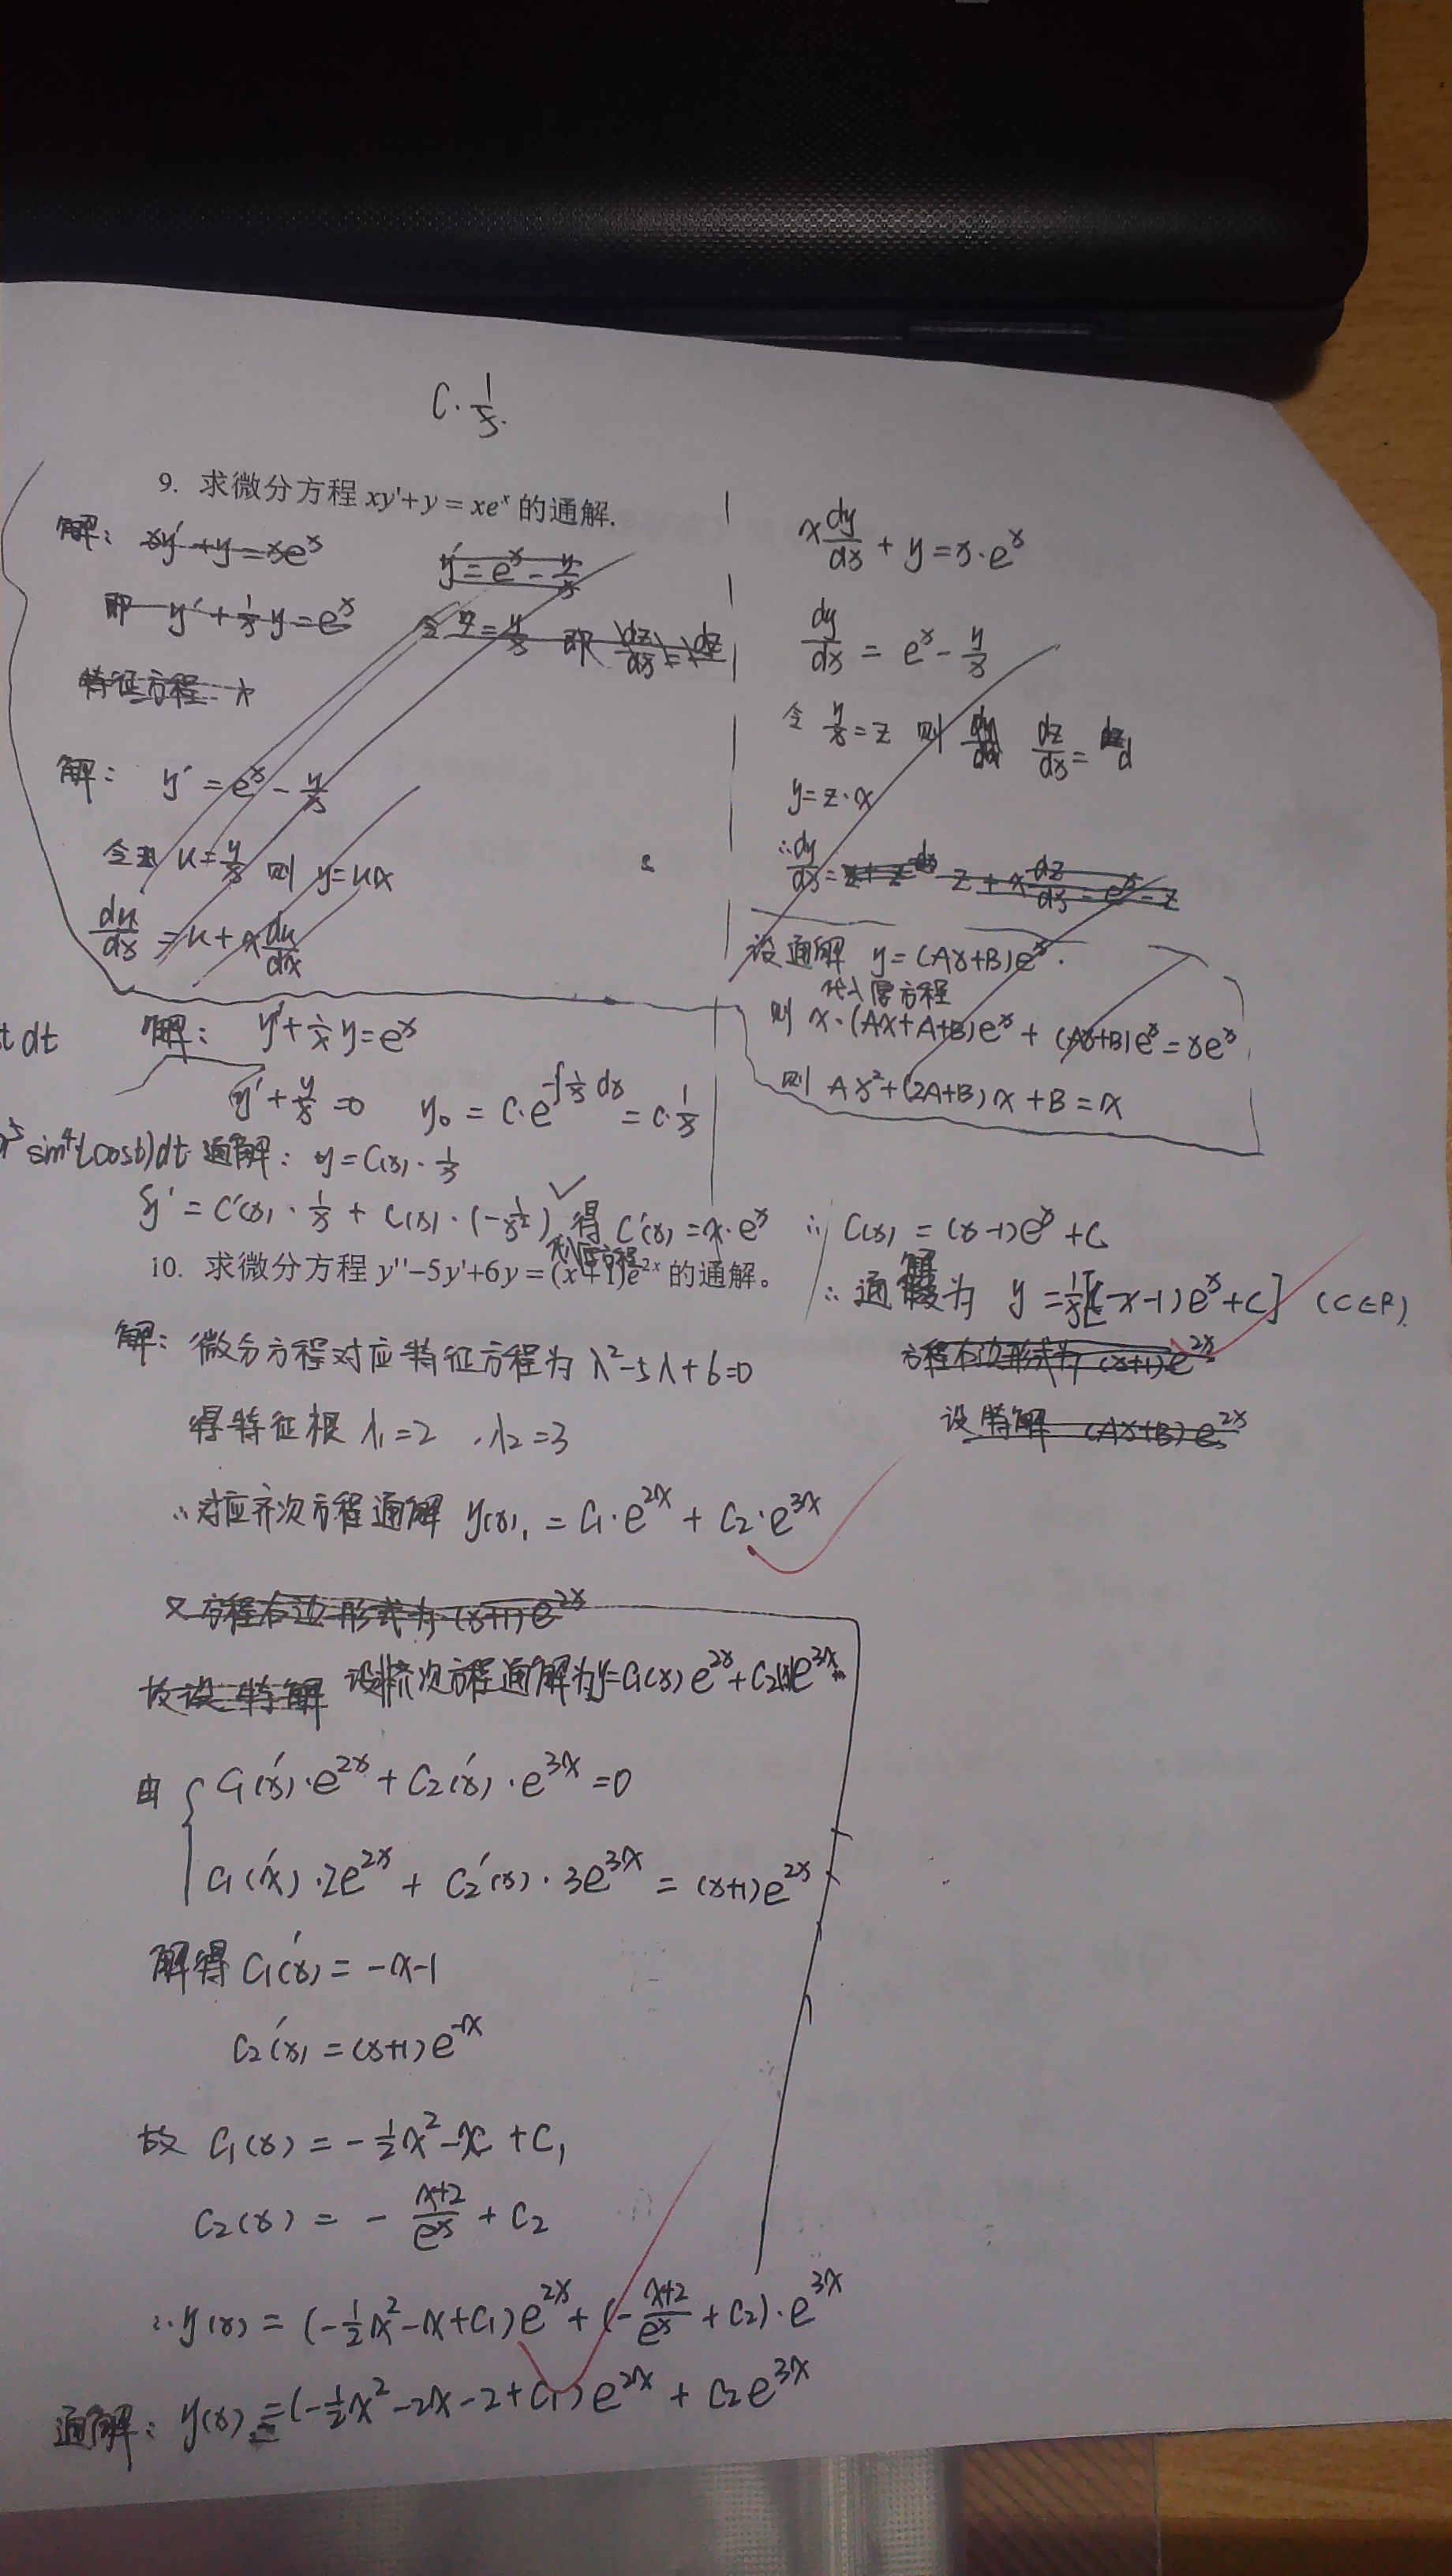 C·1/x.
9. 求微分方程 xy'+y=xeˣ 的通解.
解: xy'+y=xeˣ
y'=eˣ-y/x
即 y'+1/x y=eˣ
令 z=y/x 即 dz/dx=dz
特征方程 λ
解: y'=eˣ-y/x
令 u=y/x 则 y=ux
du/dx=u+x du/dx
x dy/dx+y=x·eˣ
dy/dx=eˣ-y/x
令 y/x=z 则 dz/dx=
y=z·x
∴dy/dx= z+x dz/dx=eˣ-z
设通解 y=(Ax+B)eˣ.
代入原方程
则 x·(Ax+A+B)eˣ+(Ax+B)eˣ=xeˣ
则 Ax²+(2A+B)x+B=x
t dt
解: y'+1/x y=eˣ
y'+y/x=0 y₀=C·e^(-∫1/x dx)=C·1/x
sin⁴t(cost)dt
通解: y=C(x)·1/x
y'=C'(x)·1/x+C(x)·(-1/x²) 代入原方程 得 C'(x)=x·eˣ ∴C(x)=(x-1)eˣ+C
∴通解为 y=1/x[(x-1)eˣ+C] (C∈R).
10. 求微分方程 y''-5y'+6y=(x+1)e²ˣ 的通解。
解: 微分方程对应特征方程为 λ²-5λ+6=0
方程右边形式为 (x+1)e²ˣ
得特征根 λ₁=2 , λ₂=3
设特解 (Ax+B)e²ˣ
∴对应齐次方程通解 y(x)₁=C₁·e²ˣ+C₂·e³ˣ
又方程右边形式为 (x+1)e²ˣ
故设特解 设非齐次方程通解为y=C₁(x)e²ˣ+C₂(x)e³ˣ
由 { C₁'(x)·e²ˣ+C₂'(x)·e³ˣ=0
C₁'(x)·2e²ˣ+C₂'(x)·3e³ˣ=(x+1)e²ˣ
解得 C₁'(x)=-x-1
C₂'(x)=(x+1)e⁻ˣ
故 C₁(x)=-1/2x²-x+C₁
C₂(x)=-(x+2)/eˣ+C₂
∴y(x)=(-1/2x²-x+C₁)e²ˣ+(-(x+2)/eˣ+C₂)·e³ˣ
通解: y(x)=(-1/2x²-2x-2+C₁)e²ˣ+C₂e³ˣ